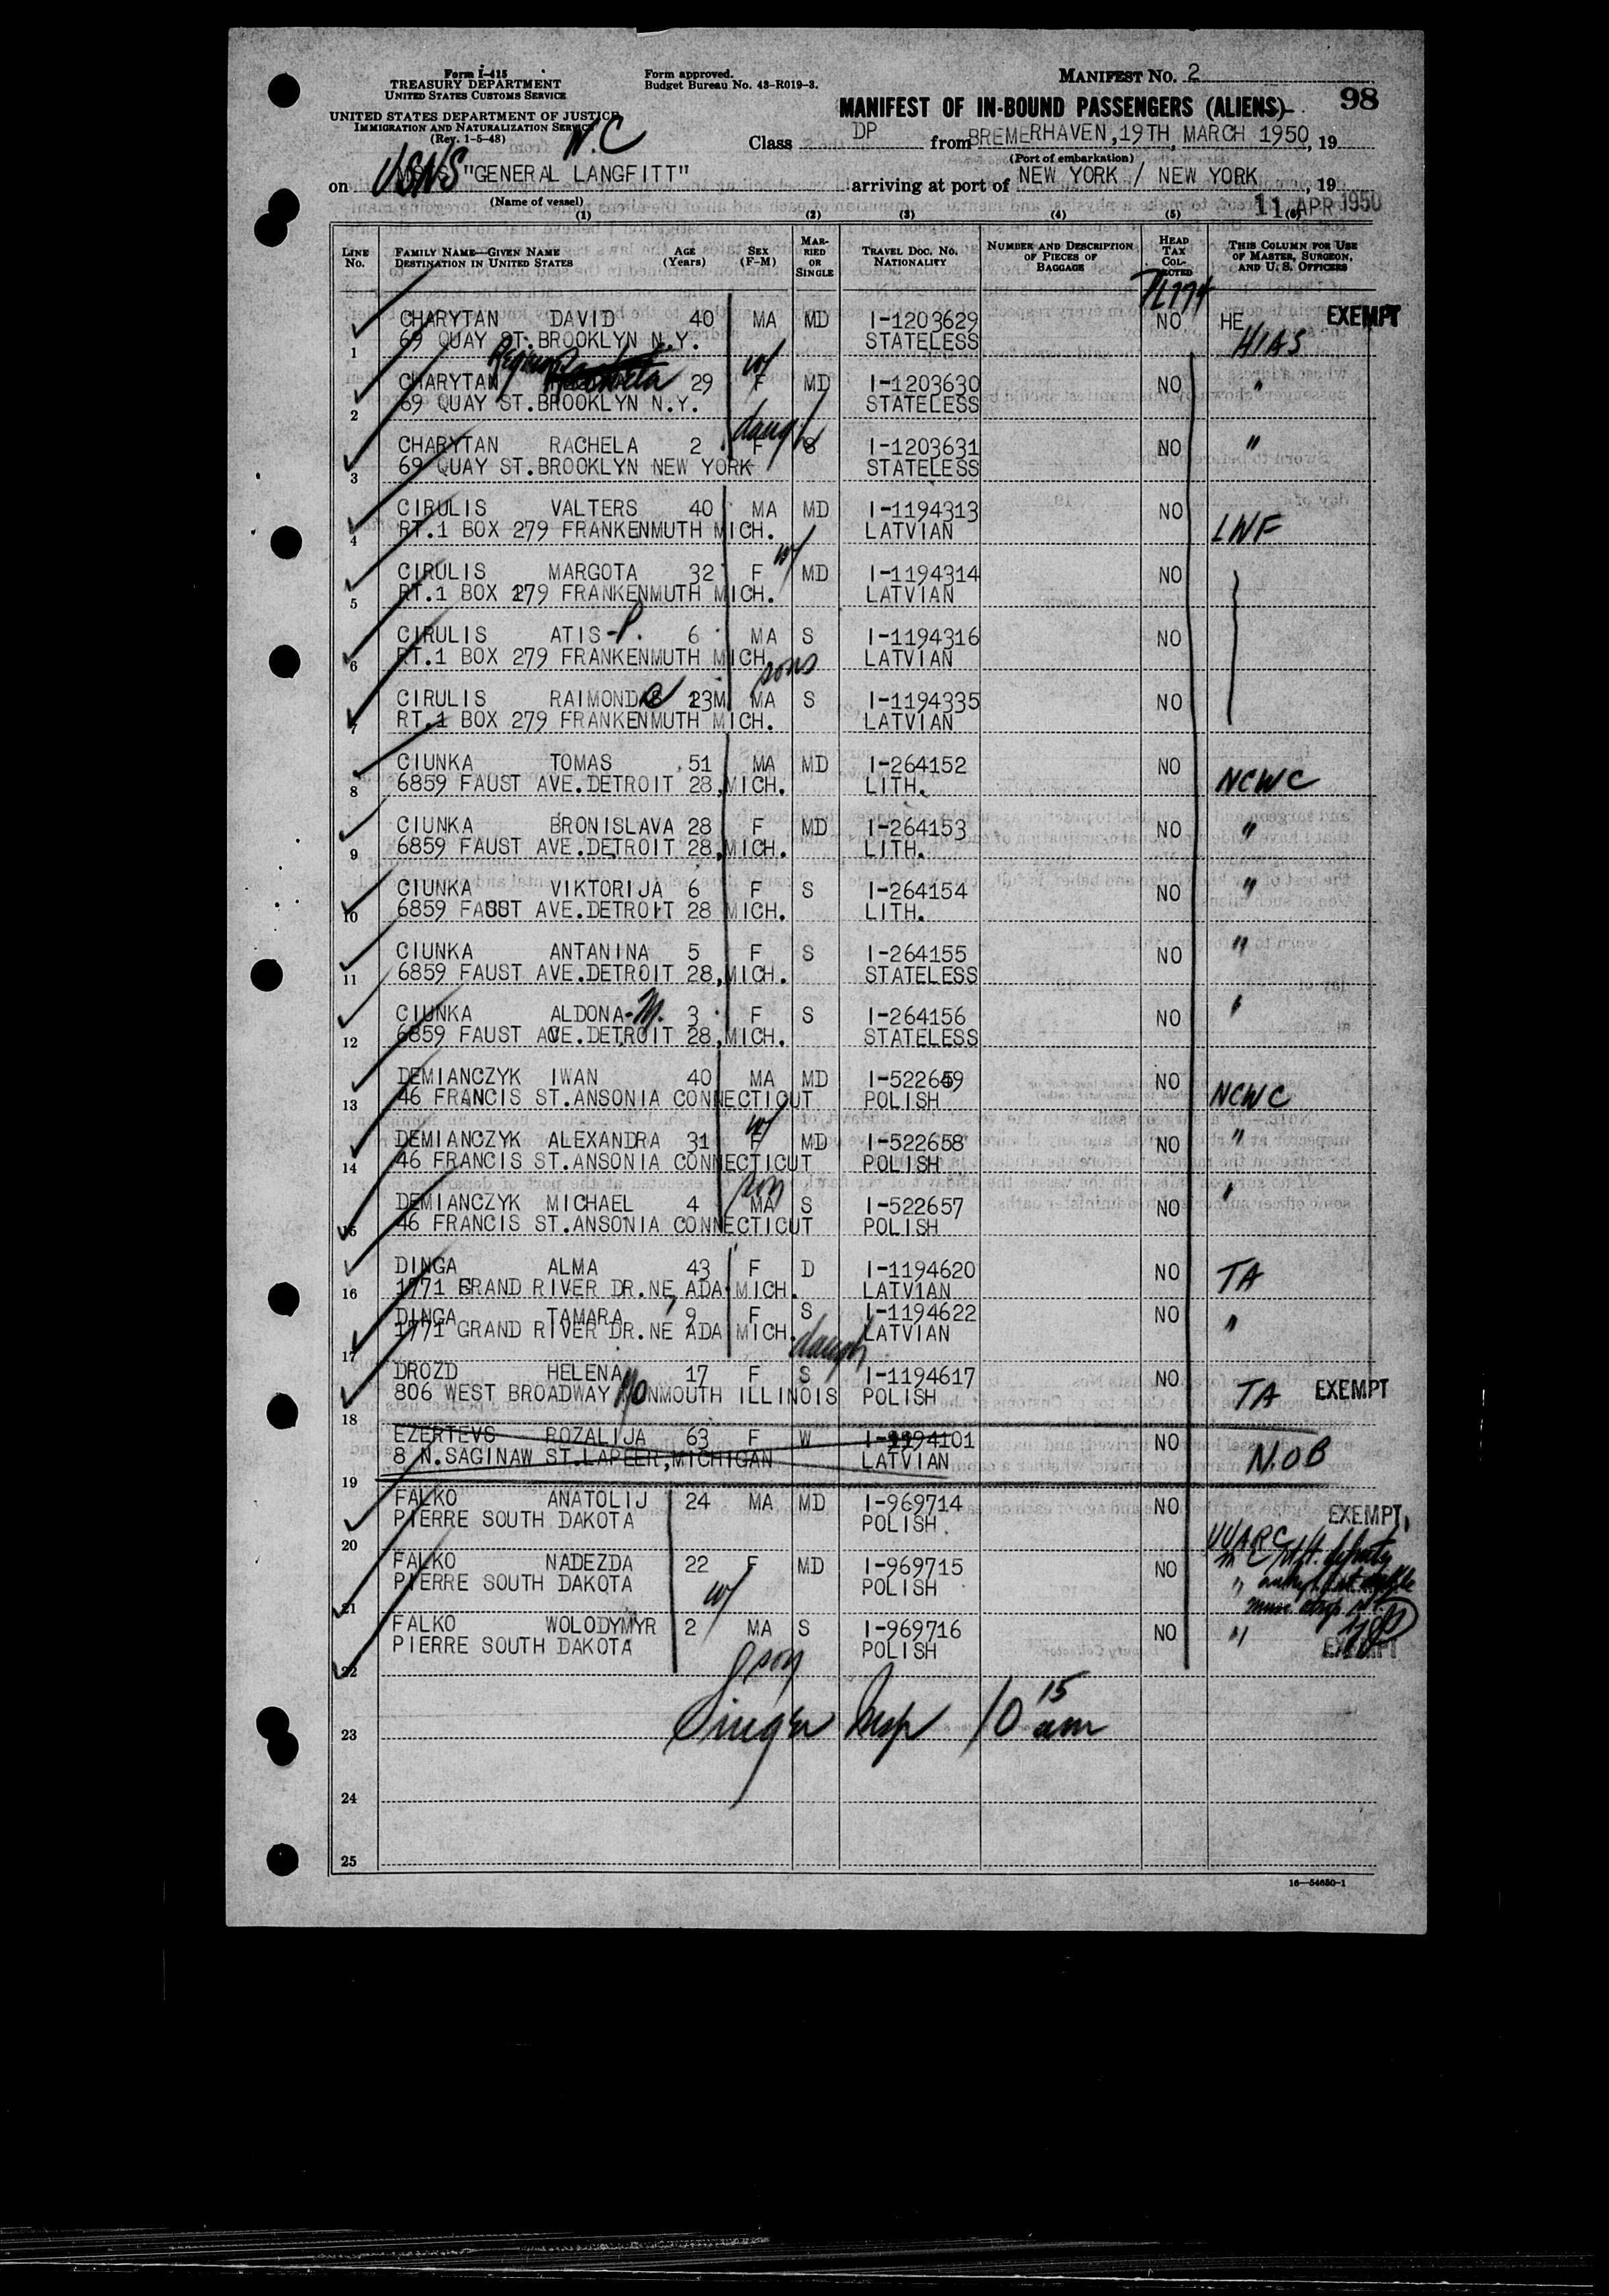 Form I-415
TREASURY DEPARTMENT
UNITED STATES CUSTOMS SERVICE
UNITED STATES DEPARTMENT OF JUSTICE
IMMIGRATION AND NATURALIZATION SERVICE
(Rev. 1-5-48)
N.C
Form approved.
Budget Bureau No. 43-R019-3.
MANIFEST NO. 2
98
MANIFEST OF IN-BOUND PASSENGERS (ALIENS)
Class DP from BREMERHAVEN, 19TH MARCH 1950, 19
(Port of embarkation)
on USNS "GENERAL LANGFITT" arriving at port of NEW YORK / NEW YORK, 19
(Name of vessel)
11 APR 1950
(1) (2) (3) (4) (5) (6)
LINE No. FAMILY NAME—GIVEN NAME DESTINATION IN UNITED STATES AGE (Years) SEX (F-M) MARRIED OR SINGLE TRAVEL DOC. NO. NATIONALITY NUMBER AND DESCRIPTION OF PIECES OF BAGGAGE HEAD TAX COLLECTED THIS COLUMN FOR USE OF MASTER, SURGEON, AND U. S. OFFICERS
PL774
CHARYTAN DAVID 40 MA MD I-1203629 NO HE EXEMPT
1 69 QUAY ST. BROOKLYN N.Y. STATELESS HIAS
CHARYTAN Regina 29 F w/ MD I-1203630 NO "
2 69 QUAY ST.BROOKLYN N.Y. STATELESS
CHARYTAN RACHELA 2 F daug S I-1203631 NO "
3 69 QUAY ST.BROOKLYN NEW YORK STATELESS
CIRULIS VALTERS 40 MA MD I-1194313 NO
4 RT.1 BOX 279 FRANKENMUTH MICH. LATVIAN LWF
CIRULIS MARGOTA 32 F w/ MD I-1194314 NO
5 RT.1 BOX 279 FRANKENMUTH MICH. LATVIAN
CIRULIS ATIS-P. 6 MA S I-1194316 NO
6 RT.1 BOX 279 FRANKENMUTH MICH. LATVIAN
sons
CIRULIS RAIMONDS 23M MA S I-1194335 NO
7 RT.1 BOX 279 FRANKENMUTH MICH. LATVIAN
CIUNKA TOMAS 51 MA MD I-264152 NO
8 6859 FAUST AVE.DETROIT 28,MICH. LITH. NCWC
CIUNKA BRONISLAVA 28 F MD I-264153 NO "
9 6859 FAUST AVE.DETROIT 28,MICH. LITH.
CIUNKA VIKTORIJA 6 F S I-264154 NO "
10 6859 FAUST AVE.DETROIT 28 MICH. LITH.
CIUNKA ANTANINA 5 F S I-264155 NO "
11 6859 FAUST AVE.DETROIT 28,MICH. STATELESS
CIUNKA ALDONA-M. 3 F S I-264156 NO "
12 6859 FAUST AVE.DETROIT 28,MICH. STATELESS
DEMIANCZYK IWAN 40 MA MD I-522659 NO
13 46 FRANCIS ST.ANSONIA CONNECTICUT POLISH NCWC
DEMIANCZYK ALEXANDRA 31 F w/ MD I-522658 NO "
14 46 FRANCIS ST.ANSONIA CONNECTICUT POLISH
DEMIANCZYK MICHAEL 4 MA son S I-522657 NO "
15 46 FRANCIS ST.ANSONIA CONNECTICUT POLISH
DINGA ALMA 43 F D I-1194620 NO TA
16 1771 GRAND RIVER DR.NE, ADA MICH. LATVIAN
DINGA TAMARA 9 F S I-1194622 NO "
17 1771 GRAND RIVER DR.NE ADA MICH. daugh LATVIAN
DROZD HELENA 17 F S I-1194617 NO TA EXEMPT
18 806 WEST BROADWAY MONMOUTH ILLINOIS POLISH
EZERTEVS ROZALIJA 63 F W I-1194101 NO N.O.B
19 8 N.SAGINAW ST.LAPEER,MICHIGAN LATVIAN
FALKO ANATOLIJ 24 MA MD I-969714 NO EXEMPT
20 PIERRE SOUTH DAKOTA POLISH
FALKO NADEZDA 22 F w/ MD I-969715 NO "
21 PIERRE SOUTH DAKOTA POLISH
FALKO WOLODYMYR 2 MA S I-969716 NO " EXEMPT
22 PIERRE SOUTH DAKOTA son POLISH
23 Singer Insp 10 15 am
24
25
16—54650-1